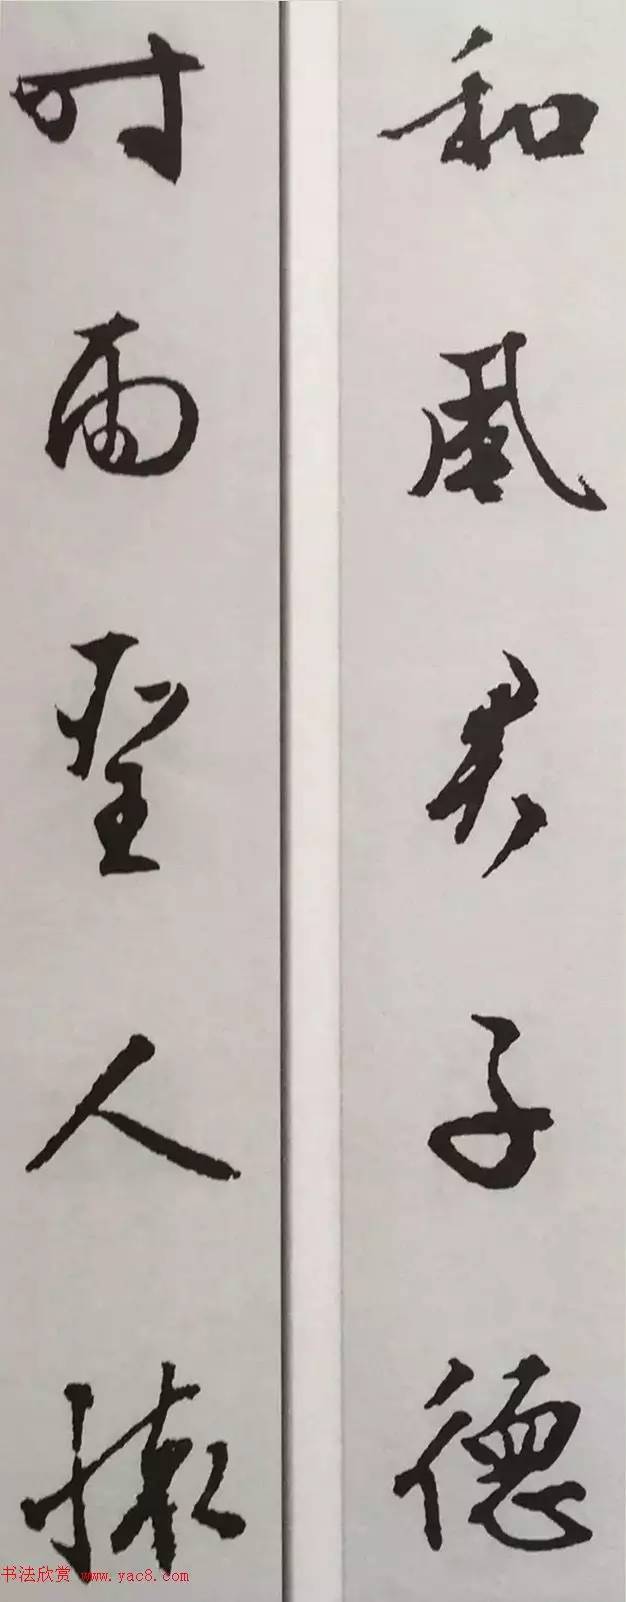 和風君子德
时雨聖人
书法欣赏 www.yac8.com